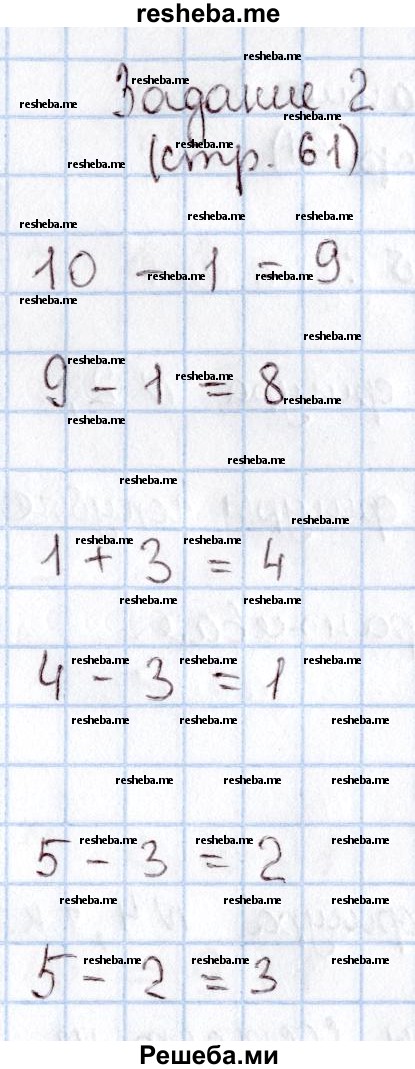 resheba.me
Задание 2
(стр. 61)
10 - 1 = 9
9 - 1 = 8
1 + 3 = 4
4 - 3 = 1
5 - 3 = 2
5 - 2 = 3
Решеба.ми